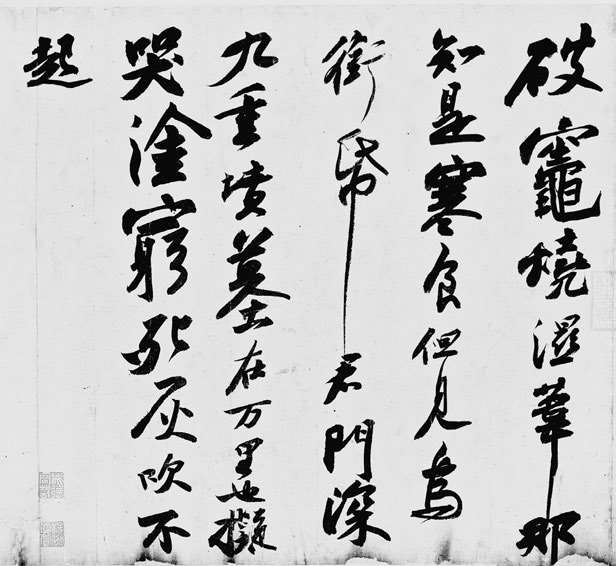 破竈燒濕葦那
知是寒食但見烏
銜帋君門深
九重墳墓在万里也擬
哭塗窮死灰吹不
起